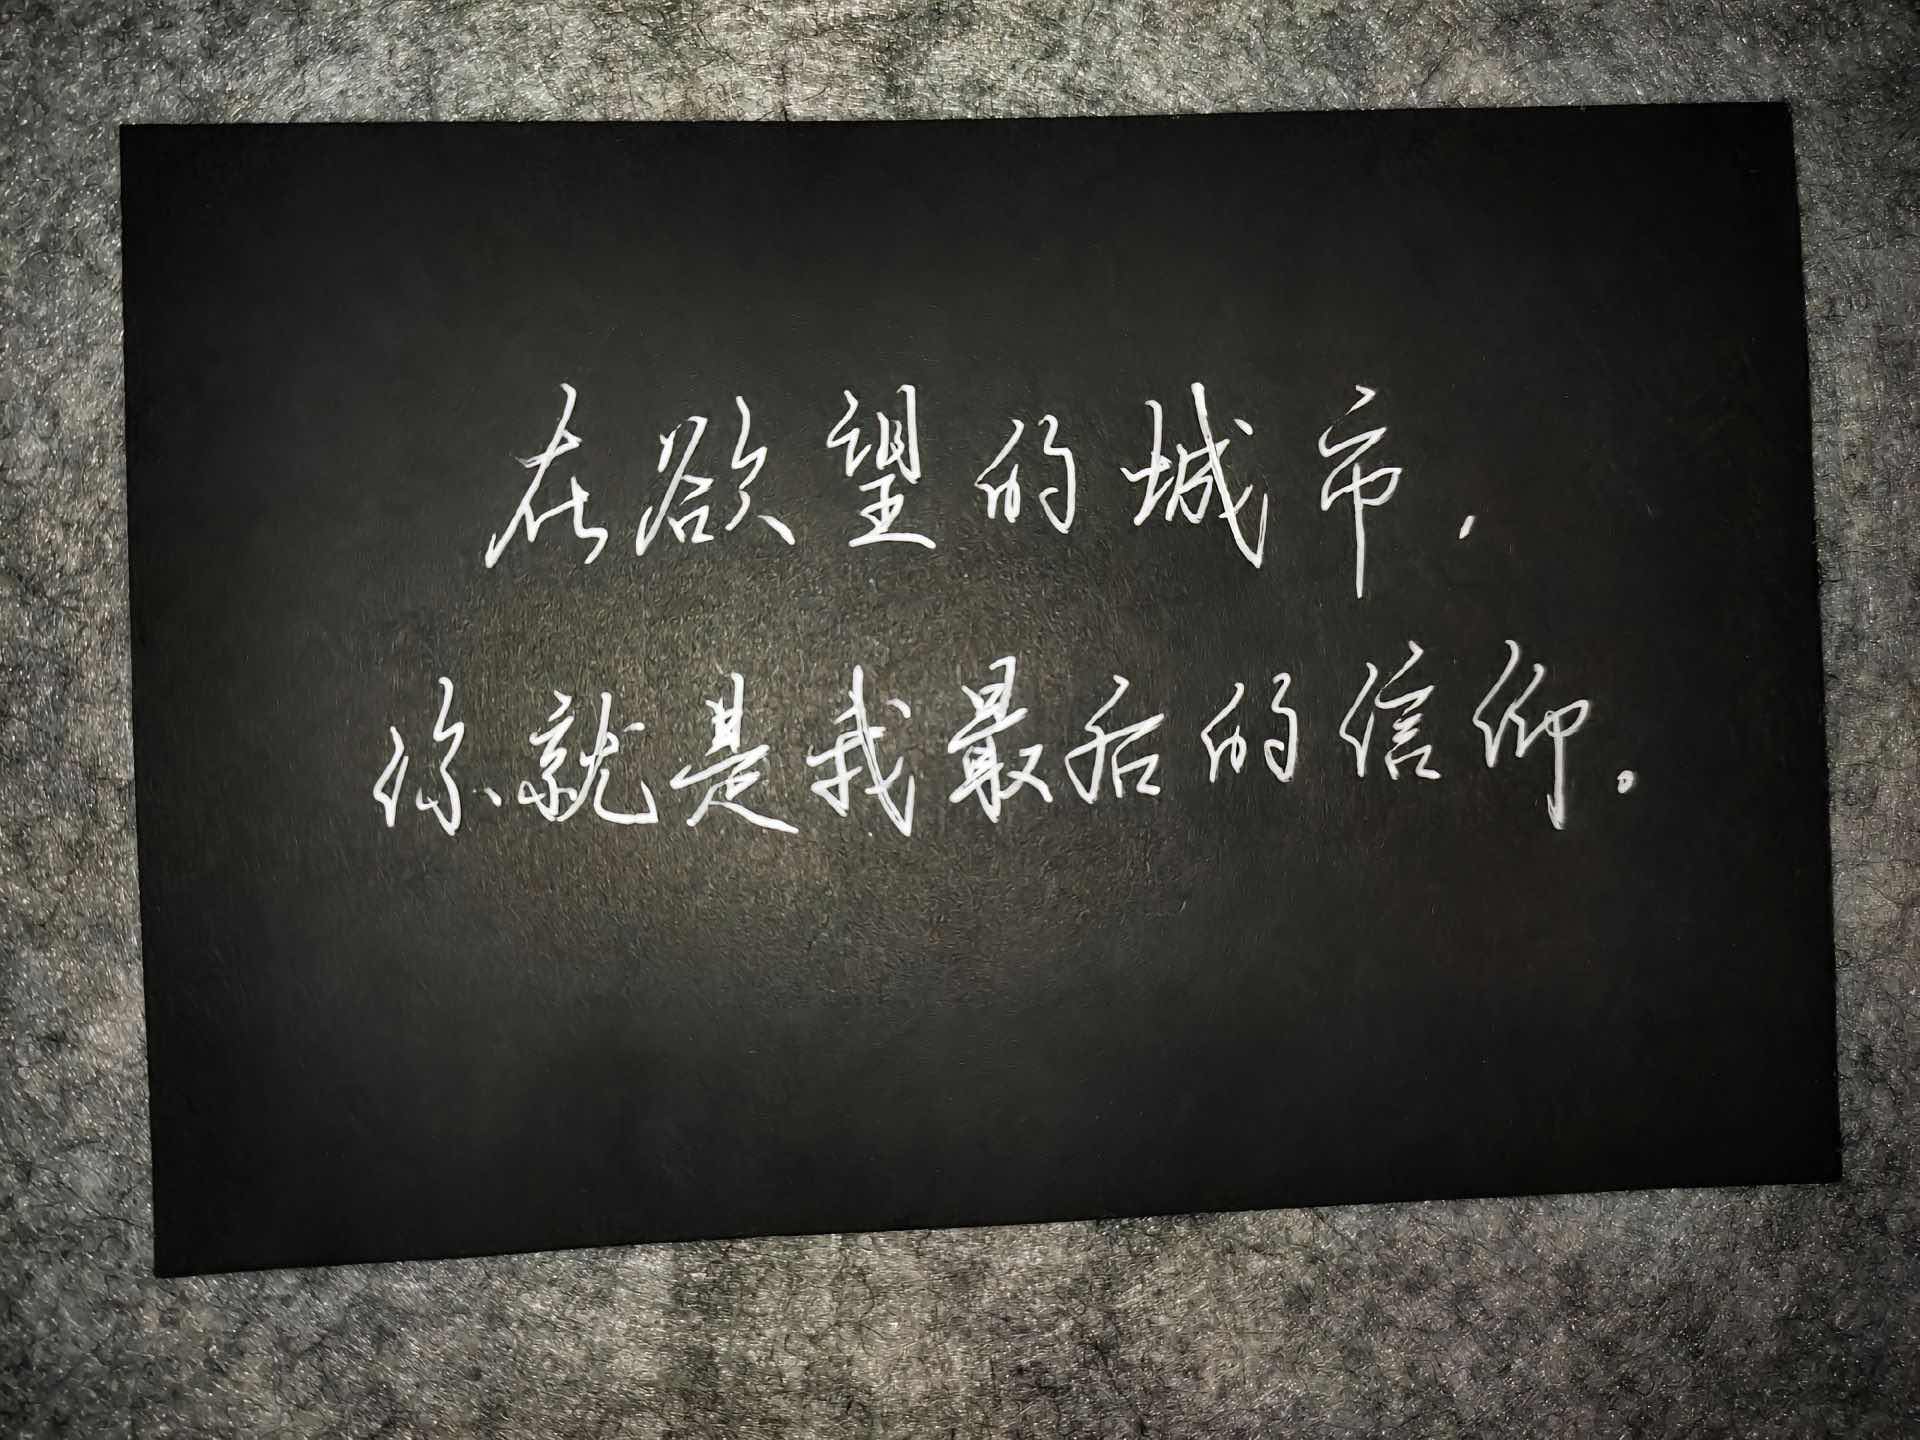 在欲望的城市，
你就是我最后的信仰。